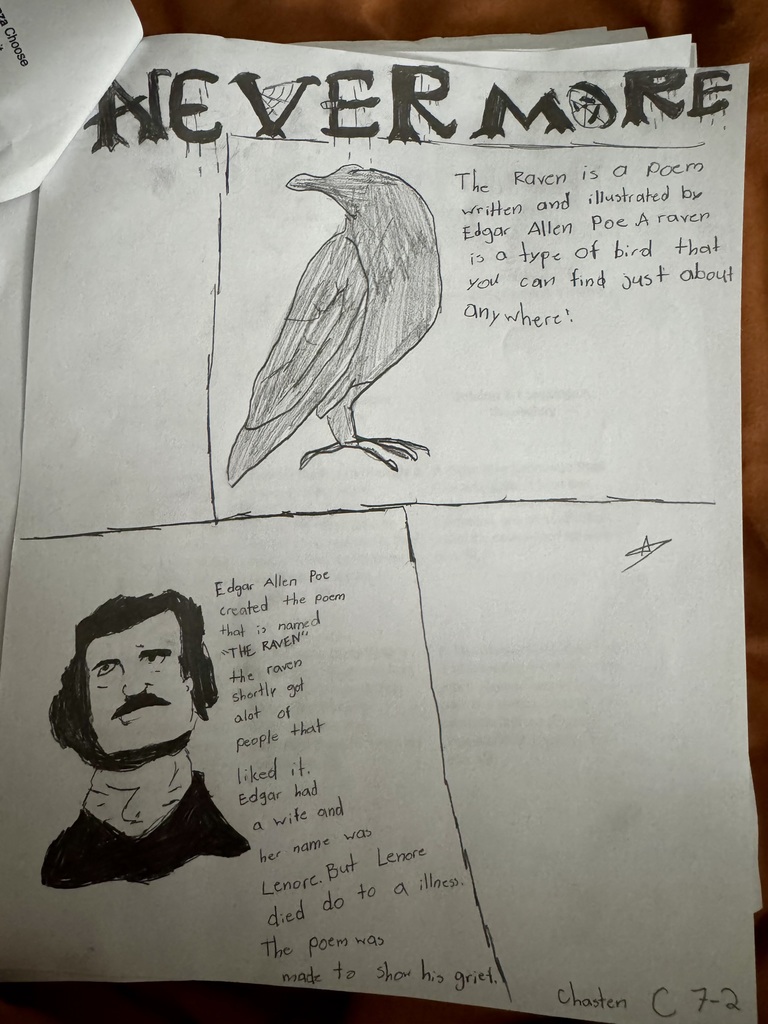 za Choose
NEVERMORE
The Raven is a poem
written and illustrated by
Edgar Allen Poe. A raven
is a type of bird that
you can find just about
anywhere!
Edgar Allen Poe
created the poem
that is named
"THE RAVEN"
the raven
shortly got
alot of
people that
liked it.
Edgar had
a wife and
her name was
Lenore. But Lenore
died do to a illness.
The poem was
made to show his grief.
Chasten C 7-2